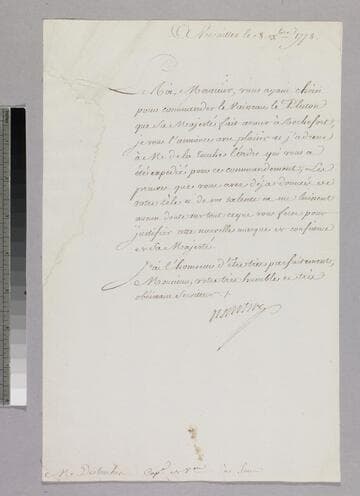 A Versailles le 8 Xbre 1778.
Le Roi, Monsieur, vous ayant choisi
pour commander le Vaisseau le
que Sa Majesté fait armer à Rochefort,
je vous l'annonce avec plaisir et j'adresse
à M. de la Touche l'ordre qui vous a
été expédié pour ce commandement. Les
preuves que vous avez déjà données de
votre zèle et de vos talents ne me laissent
aucun doute sur tout ce que vous ferez pour
justifier cette nouvelle marque de confiance
de Sa Majesté.
J'ai l'honneur d'être très parfaitement,
Monsieur, votre très humble et très
obéissant Serviteur.
M. Destouches Cap.e de V.au